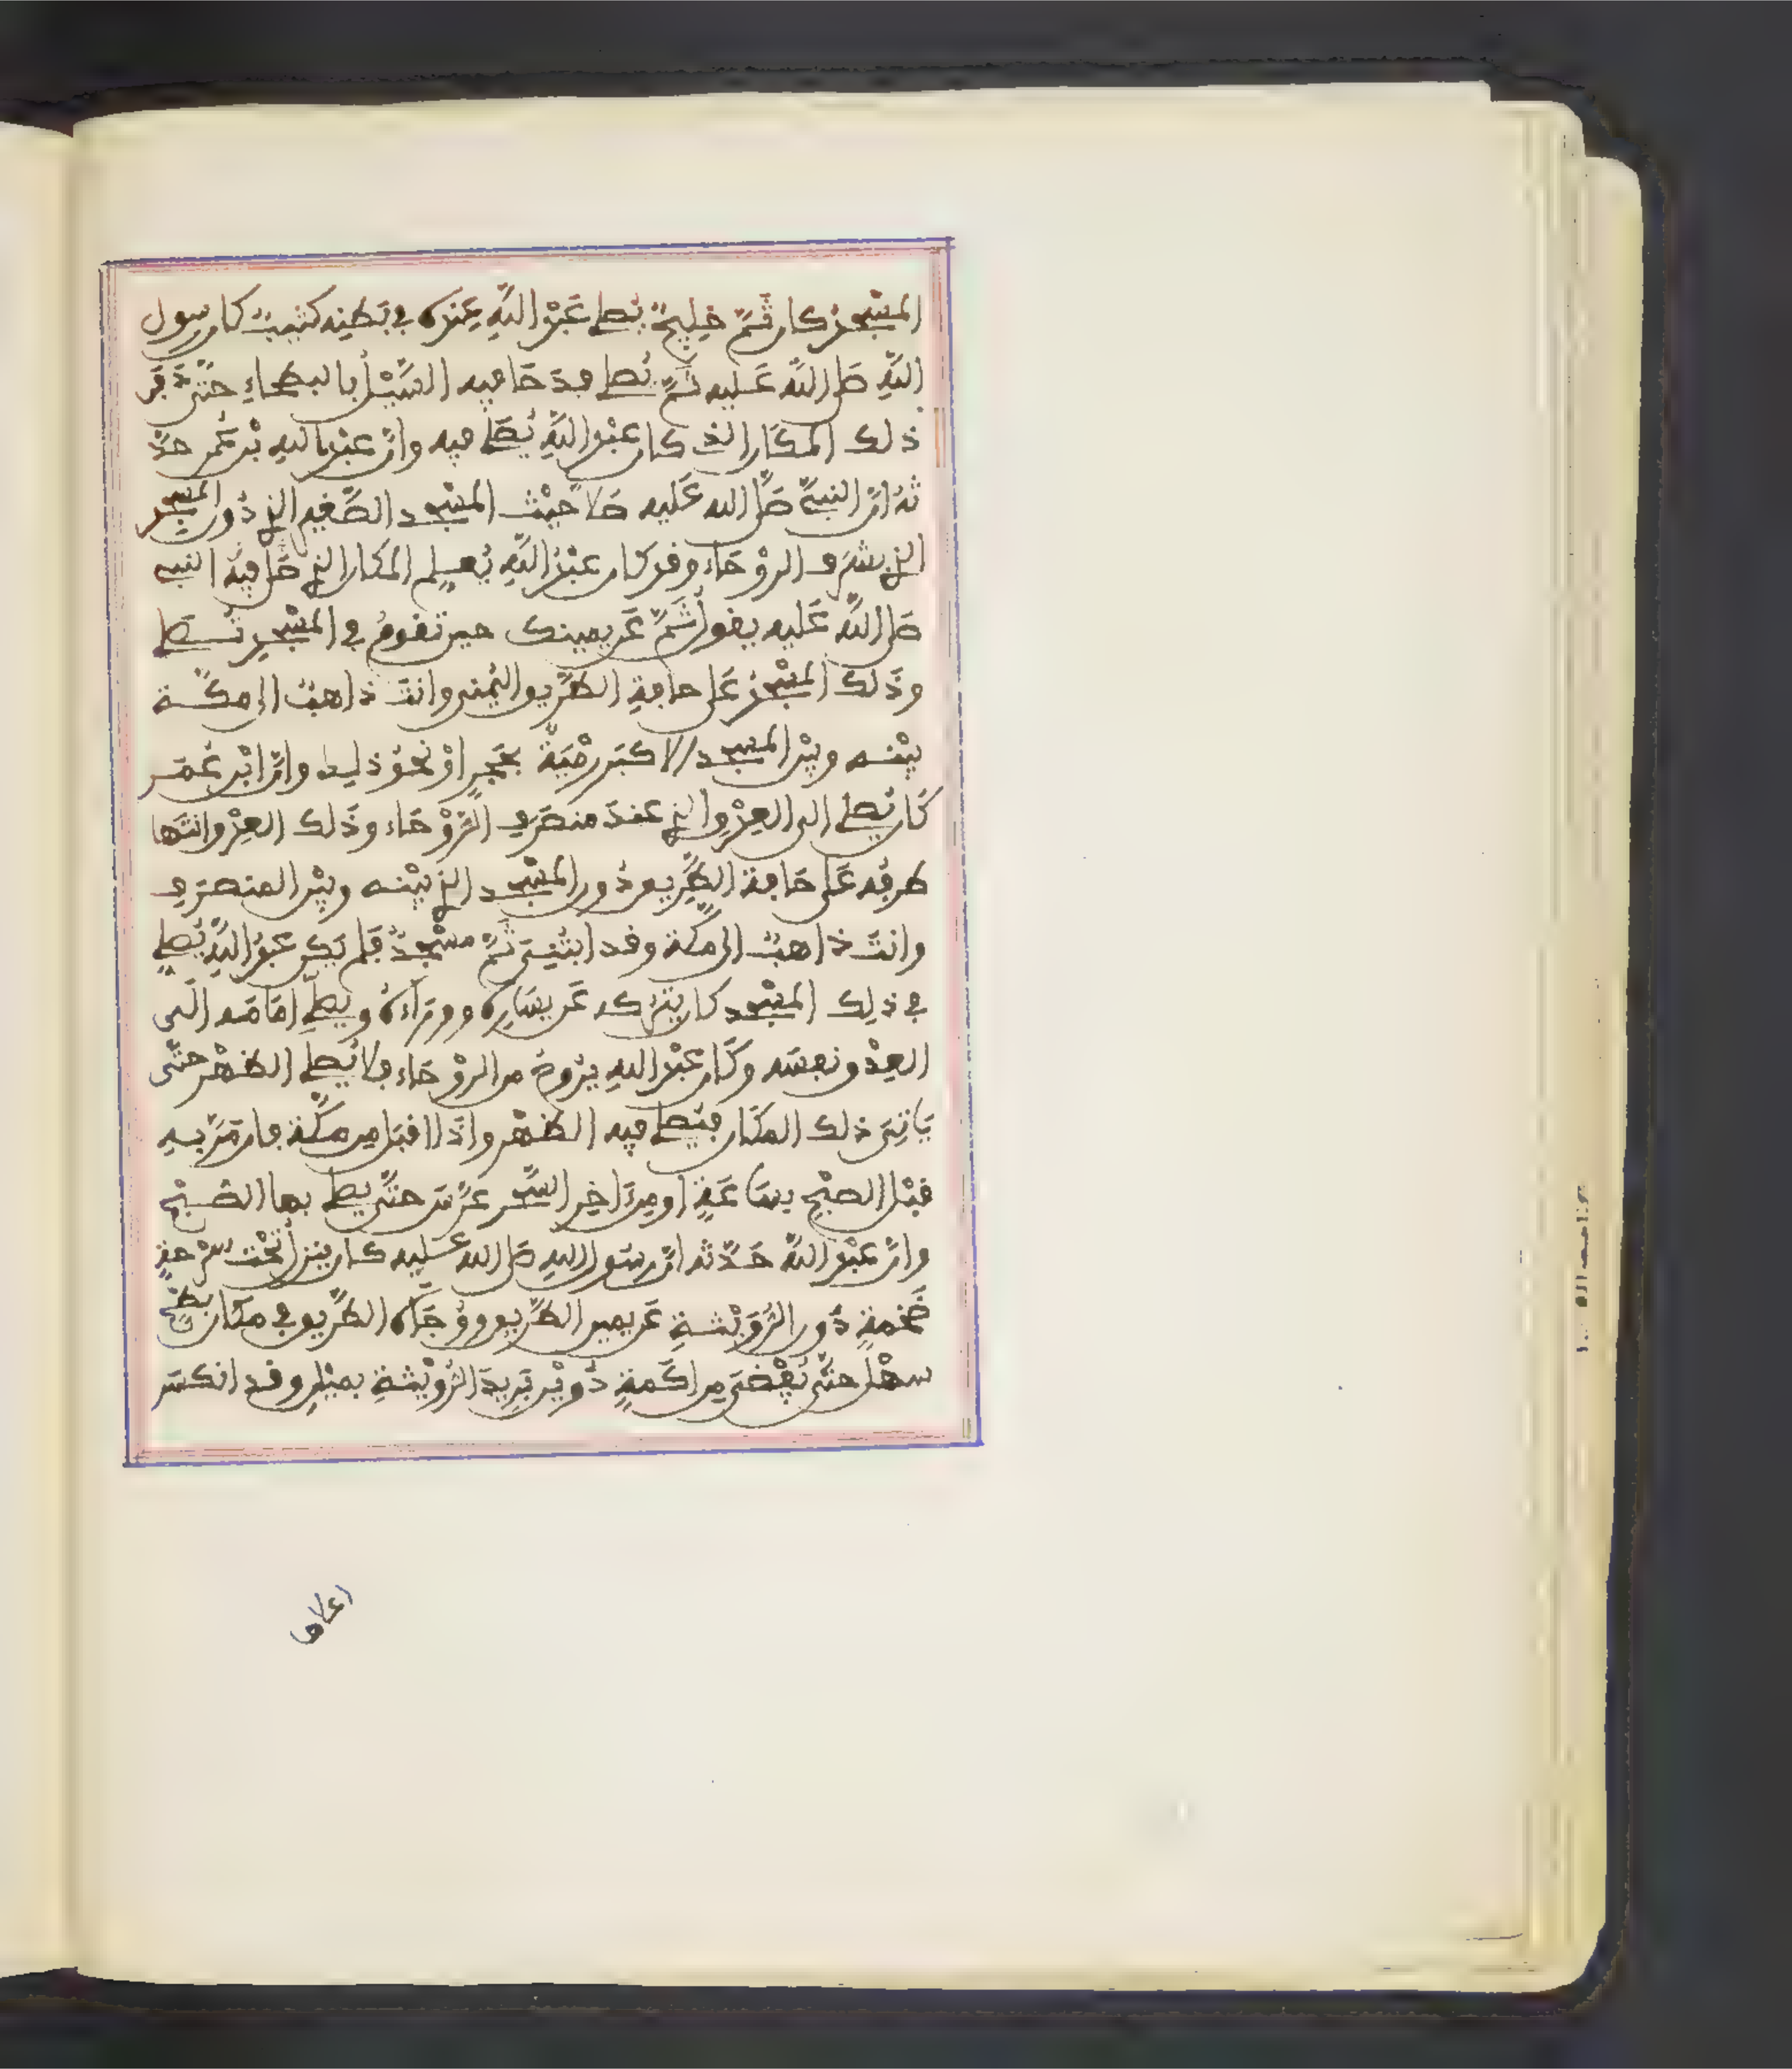 المسجد كان ثَمَّ خليجٌ يُصلي عبدُ اللهِ عنده في بطنه كُثُبٌ كان رسول
اللهِ صلى اللهُ عليه ثَمَّ يُصلي فدحا فيه السَّيْلُ بالبطحاءِ حتَّى دَفَنَ
ذلك المكان الذي كان عبدُ اللهِ يُصلي فيه وانَّ عبدَ اللهِ بْنَ عُمر حدَّ
ثَهُ انَّ النبيَّ صلَّى الله عليه صلا حيْثُ المسْجِد الصَّغيرِ الذي دُون المسْجِد
الذي بشرَفِ الروْحاء وقد كان عبْدُ اللهِ يُعلِم المكان الذي صَلى فيهِ النبي
صلى اللهُ عَليه يقولُ ثَمَّ عَن يمينك حين تقومُ في المسْجِدِ تُصَلي
وذَلك المسْجِدُ عَلى حافةِ الطَّريق اليُمنى وانتَ ذاهبٌ الى مكَّة
بيْنه وبيْن المسْجِد الاكبَر رمْيَةٌ بحَجرٍ اوْ نحْوُ ذلِك وانَّ ابْن عُمَر
كَان يُصلي الى العِرْقِ الذي عندَ منصَرفِ الرَّوْحَاء وذَلك العِرْق انتَها
طرفُه عَلى حَافة الطَّريق دُون المسْجِد الذي بيْنه وبيْن المنصرَفِ
وانتَ ذاهبٌ الى مكَّة وقد ابتُنِيَ ثَمَّ مسْجدٌ فلم يَكن عبدُ اللهِ يُصلي
في ذلِك المسْجِد كان يترُكه عَن يسَارِه ووَرَاءَهُ ويصلِّي امَامَه الَى
العِرْق نفسَه وكَان عَبْدُ اللهِ يرُوحُ من الروْحَاء فلا يُصلي الظُّهْر حتَّى
يَاتِيَ ذلك المكَان فيُصلي فيه الظُّهْر واذَا اقبَل مِن مكَّة فان مَرَّ بهِ
قبْل الصبْحِ بسَاعَةٍ او مِن اخِر السَّحَر عَرَّسَ حتَّى يصلي بها الصُّبْح
وانَّ عَبْدَ اللهِ حَدَّثه انَّ رسُول اللهِ صلى الله عليه كان ينزلُ تحْتَ سرْحةٍ
ضَخمةٍ دُون الرُّوَيْثةِ عَن يمين الطَّريق ووُجَاهَ الطَّريق في مكَان بطْحٍ
سهْلٍ حتَّى يُفْضيَ مِن اكَمةٍ دُوَيْن بَريدَ الرُّوَيْثَةِ بميْلين وقد انكسَر
اعلاها